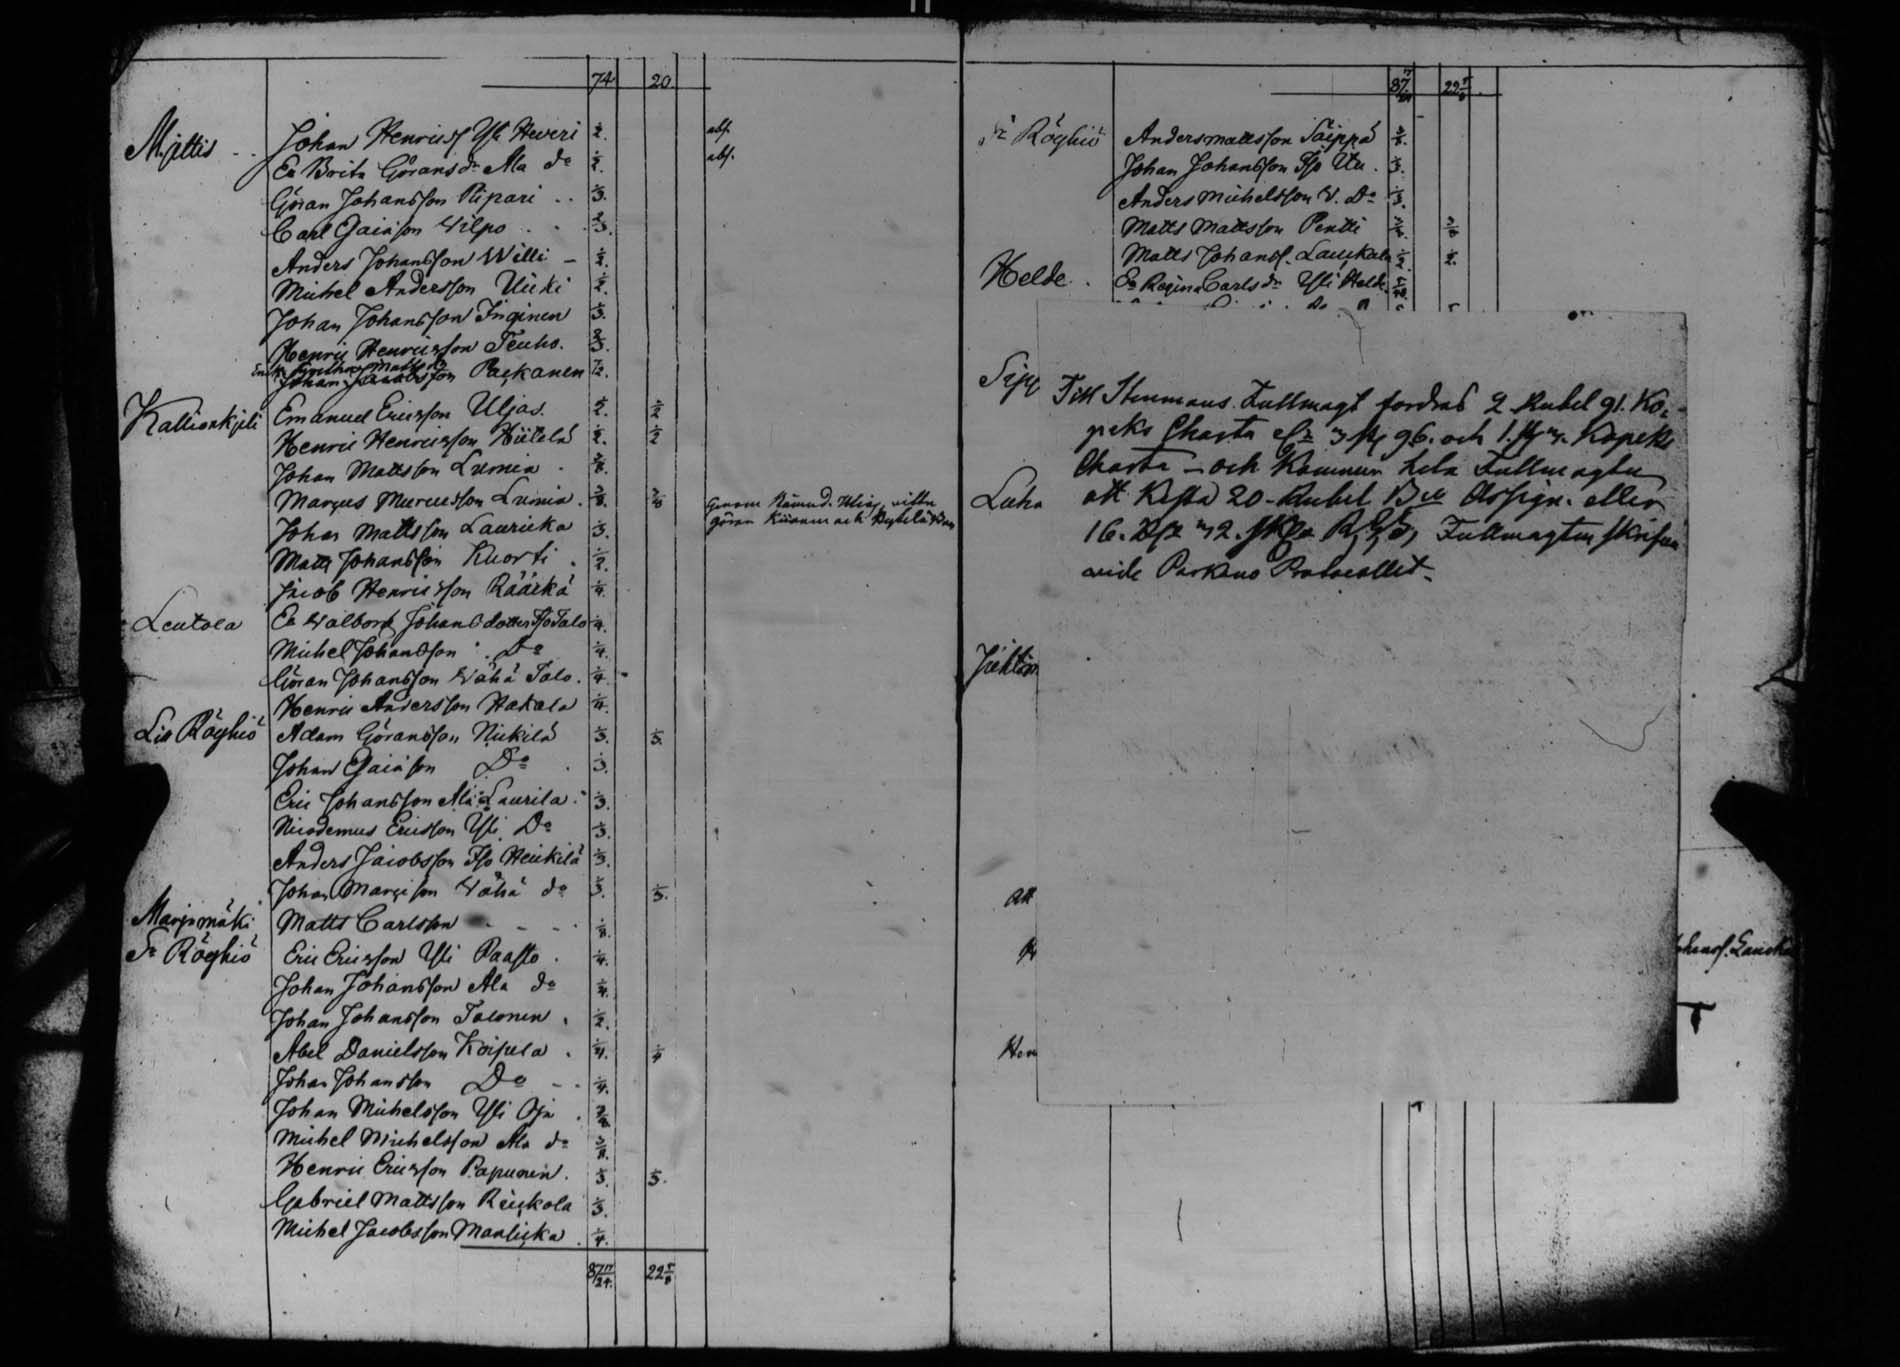 74 20
Mjettis Johan Henricss Yli Heveri 1/2. abs.
Ea Brita Göransdr Ala do 1/2. abs.
Göran Johansson Piipari 1/3.
Carl Gaiason Wilpo 2/3.
Anders Johansson Willi 1/2.
Michel Andersson Uicki 1/2.
Johan Johansson Inginen 1/3.
Henric Henricsson Teuho. 2/3.
Johan Jacobsson Packanen 7/12.
Kallionkjeli Emanuel Ericsson Uljas. 1/2. 1/2
Henric Henricsson Hiitelä 1/2. 1/2
Johan Mattsson Lumia 3/8.
Marcus Marcusson Lumia. 3/8. 3/8
Johan Mattsson Lauricka 1/3.
Matts Johansson Kuorti 1/2.
Jacob Henricsson Rääckä 1/4.
Leutola Ea Walborg Johansdotter Iso Talo 1/4.
Michel Johansson Do 1/4.
Göran Johansson Wähä Talo. 1/4.
Henric Andersson Hakala 1/4.
Lill Röyhiö Adam Göransson Nickilä 1/3. 1/3.
Johan Gaiason Do 1/3.
Eric Johansson Ala Laurila 1/3.
Nicodemus Ericsson Yli Do 1/3.
Anders Jacobsson Iso Heickilä 1/3.
Johan Marcison Wähä do 1/3. 1/3.
Marjamäki Matts Carlsson 1/8.
St Röyhiö Eric Ericsson Yli Paasto 1/4.
Johan Johansson Ala do 1/4.
Johan Johansson Talonen 1/2.
Abel Danielsson Koipela 1/4. 1/4
Johan Johansson Do 1/4.
Johan Michelsson Yli Oja
Michel Michelsson Ala do 3/8.
Henric Ericsson Papunen. 1/3. 1/3.
Gabriel Mattsson Reickola 1/3.
Michel Jacobsson Manlicka 1/4.
87 17/24. 22 5/8
87 22 5/8
St Röyhiö Anders Mattsson Säippä 3/8.
Johan Johansson Iso Uu. 1/3.
Anders Michelsson W. Do 1/3.
Matts Mattsson Pentti 3/8
Matts Johanss. Lauckala 1/2. 1/2.
Helde Ea Regina Carlsdr Yli Helde
Sipp
Till Stenmans Fullmagt fordras 2 Rubel 91. Ko-
peks Charta och Kopeks
Charta – och Kommer hela Fullmagten
att Kosta 20 Rubel Bco Assign. eller
16. Fullmagten skrifven
vide Parkano Protocollet.
Luha
Johanss. Lauckala